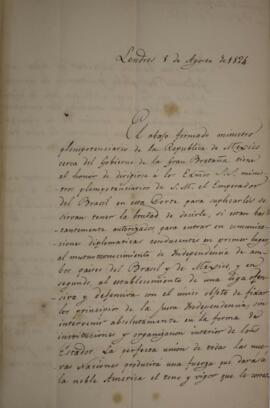 Londres 8 de Agosto de 1824
El abajo firmado ministro
plenipotenciario de la Republica de Mexico
cerca del Gobierno de la Gran Bretaña tiene
el honor de dirigirse à los Exmos S.S. minis
tros plenipotenciarios de S.M. el Emperador
del Brasil en esta Corte para suplicarles se
sirvan tener la bondad de decirle, si estan bas
tantemente autorizados para entrar en comunica
ciones diplomaticas conducentes en primer lugar,
al mutuo reconocimiento de Independencia de am
bos paises del Brasil y de Mexico, y en
segundo, al establecimiento de una liga ofen
siva y defensiva con el unico objeto de fixar
los principios de la Justa Independencia, sin
intervenir absolutamente en la forma de
instituciones y organizacion interior de los
Estados. La perfecta union de todas las nue
vas Naciones producirá una fuerza que dará á
la noble America el tono y vigor que le corres